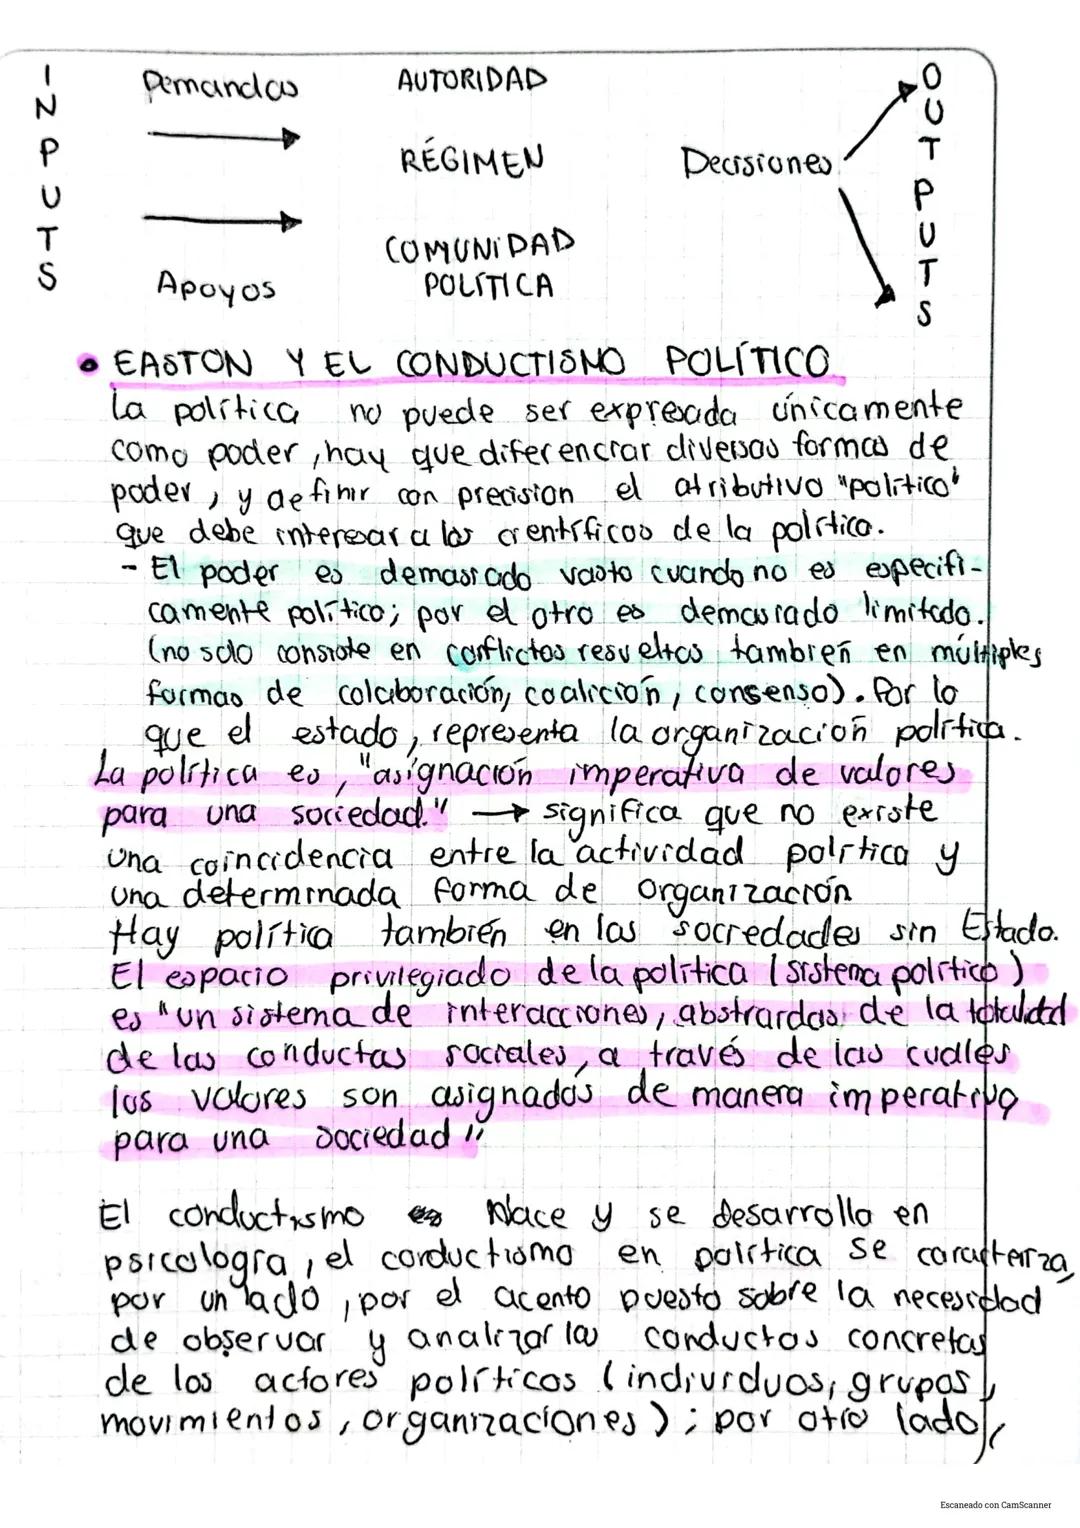 INPUTS
Demandas
AUTORIDAD
RÉGIMEN
COMUNIDAD
POLÍTICA
Apoyos
Decisiones
OUTPUTS
• EASTON Y EL CONDUCTISMO POLÍTICO
La política no puede ser expresada únicamente
como poder, hay que diferenciar diversas formas de
poder, y definir con precision el atributivo "político"
que debe interesar a los científicos de la política.
- El poder es demasiado vasto cuando no es especifi-
camente político; por el otro es demasiado limitado.
(no solo consiste en conflictos resueltos también en múltiples
formas de colaboración, coalición, consenso). Por lo
que el estado, representa la organización política.
La política es, "asignación imperativa de valores
para una sociedad." → significa que no existe
una coincidencia entre la actividad política y
una determinada forma de organización
Hay política también en las sociedades sin Estado.
El espacio privilegiado de la política (sistema político)
es "un sistema de interacciones, abstraidas de la totalidad
de las conductas sociales, a través de las cuales
los valores son asignados de manera imperativa
para una sociedad"
El conductismo Nace y se desarrolla en
psicología, el conductismo en política se caracteriza,
por un lado, por el acento puesto sobre la necesidad
de observar y analizar las conductas concretas
de los actores políticos (individuos, grupos,
movimientos, organizaciones); por otro lado,
Escaneado con CamScanner